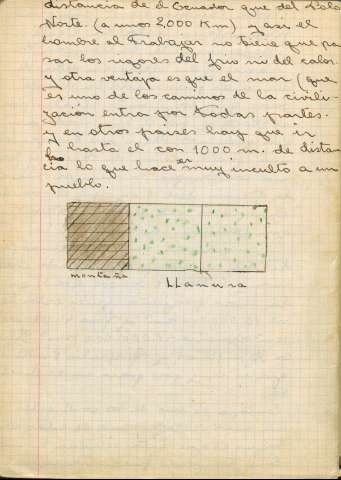 distancia de el Ecuador que del Polo
Norte. (a unos 2,000 Km) y asi el
hombre al Trabajar no tiene que pa-
sar los rigores del frio ni del calor.
y otra ventaja es que el mar (que
es uno de los caminos de la civili-
zación entra por todas partes.
y en otros paises hay que ir
hasta el con 1000 m. de distan-
cia lo que hace er muy inculto a un
pueblo.
montaña
LLanura